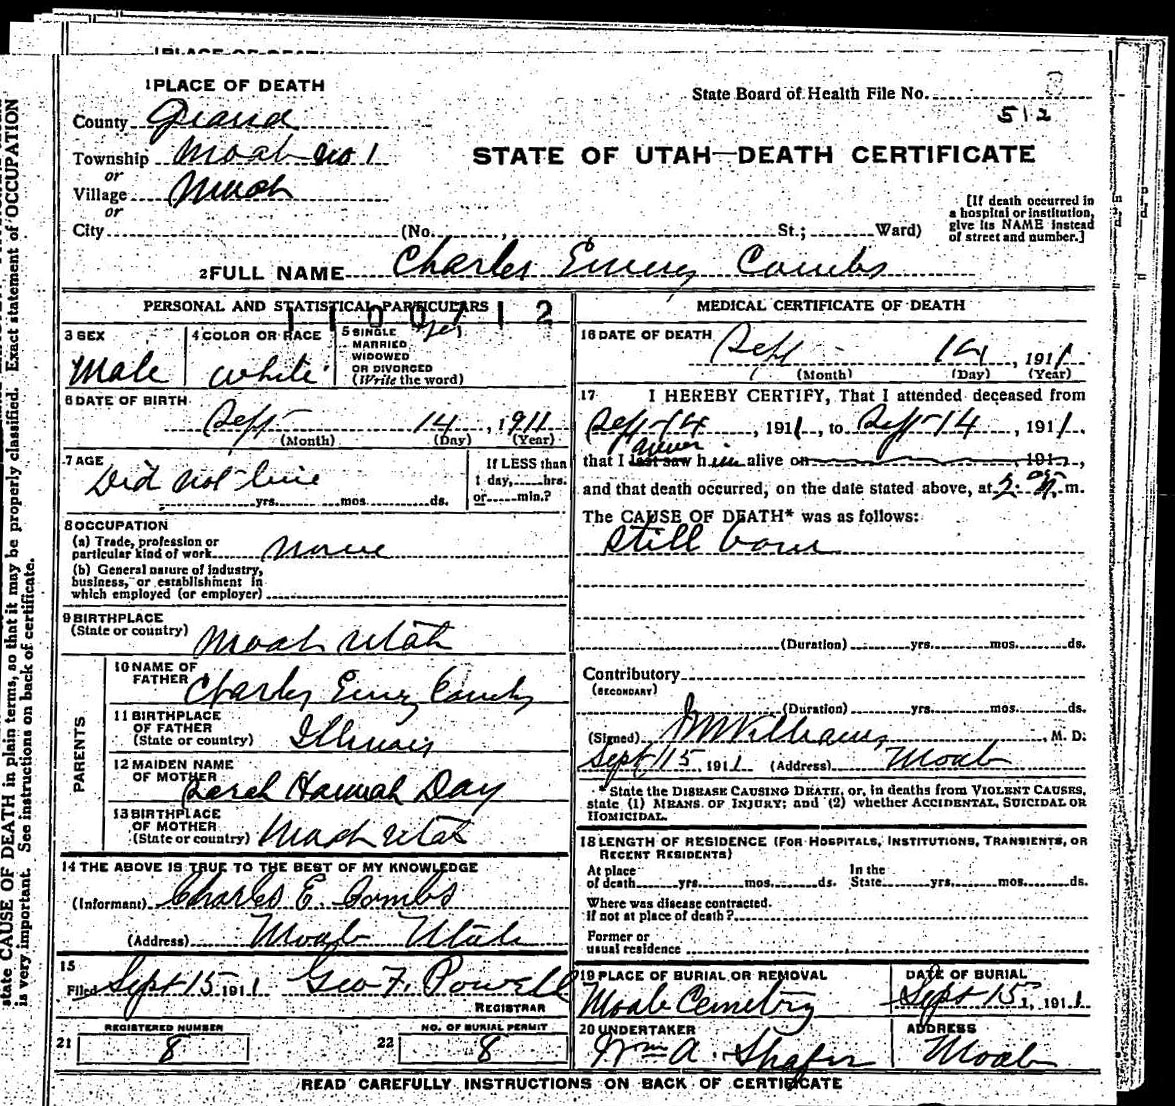 1 PLACE OF DEATH
County Grand
Township Moab no 1
or
Village Moab
or
City (No. St.; Ward)
State Board of Health File No.
512
STATE OF UTAH—DEATH CERTIFICATE
[If death occurred in
a hospital or institution,
give its NAME instead
of street and number.]
2 FULL NAME Charles Emery Combs
PERSONAL AND STATISTICAL PARTICULARS
3 SEX
Male
4 COLOR OR RACE
White
5 SINGLE
MARRIED
WIDOWED
OR DIVORCED
(Write the word)
6 DATE OF BIRTH
Sept 14, 1911
(Month) (Day) (Year)
7 AGE
Did not live
yrs. mos. ds.
If LESS than
1 day, hrs.
or min.?
8 OCCUPATION
(a) Trade, profession or
particular kind of work None
(b) General nature of industry,
business, or establishment in
which employed (or employer)
9 BIRTHPLACE
(State or country) Moab Utah
PARENTS
10 NAME OF
FATHER Charles Emery Combs
11 BIRTHPLACE
OF FATHER
(State or country) Illinois
12 MAIDEN NAME
OF MOTHER Sarah Hannah Day
13 BIRTHPLACE
OF MOTHER
(State or country) Moab Utah
14 THE ABOVE IS TRUE TO THE BEST OF MY KNOWLEDGE
(Informant) Charles E. Combs
(Address) Moab Utah
15
Filed Sept 15 1911 Geo F. Powell
REGISTRAR
REGISTERED NUMBER
21 8
NO. OF BURIAL PERMIT
22 8
MEDICAL CERTIFICATE OF DEATH
16 DATE OF DEATH
Sept 14, 1911
(Month) (Day) (Year)
17 I HEREBY CERTIFY, That I attended deceased from
Sept 14, 1911, to Sept 14, 1911,
never
that I last saw him alive on 191 ,
and that death occurred, on the date stated above, at 2 m.
The CAUSE OF DEATH* was as follows:
Still born
(Duration) yrs. mos. ds.
Contributory
(SECONDARY)
(Duration) yrs. mos. ds.
(Signed) J W Williams, M. D.
Sept 15, 1911 (Address) Moab
* State the DISEASE CAUSING DEATH, or, in deaths from VIOLENT CAUSES,
state (1) MEANS OF INJURY; and (2) whether ACCIDENTAL, SUICIDAL OR
HOMICIDAL.
18 LENGTH OF RESIDENCE (FOR HOSPITALS, INSTITUTIONS, TRANSIENTS, OR
RECENT RESIDENTS)
At place
of death yrs. mos. ds.
In the
State yrs. mos. ds.
Where was disease contracted.
if not at place of death?
Former or
usual residence
19 PLACE OF BURIAL OR REMOVAL
Moab Cemetery
DATE OF BURIAL
Sept 15, 1911
20 UNDERTAKER
Wm A. Shafer
ADDRESS
Moab
READ CAREFULLY INSTRUCTIONS ON BACK OF CERTIFICATE
state CAUSE OF DEATH in plain terms, so that it may be properly classified. Exact statement of OCCUPATION
is very important. See instructions on back of certificate.